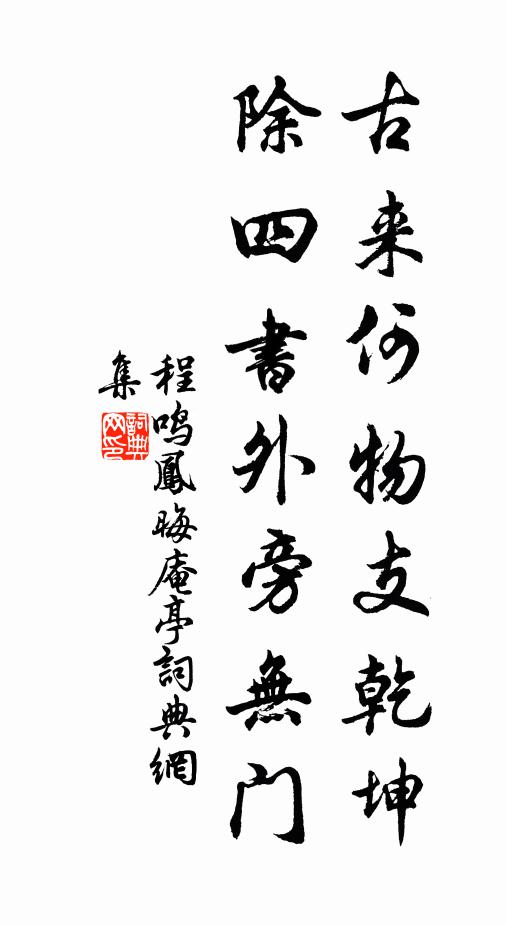 古来何物支乾坤
除四書外旁無門
程鳴鳳晦庵亭詞典網
集
詞典網印